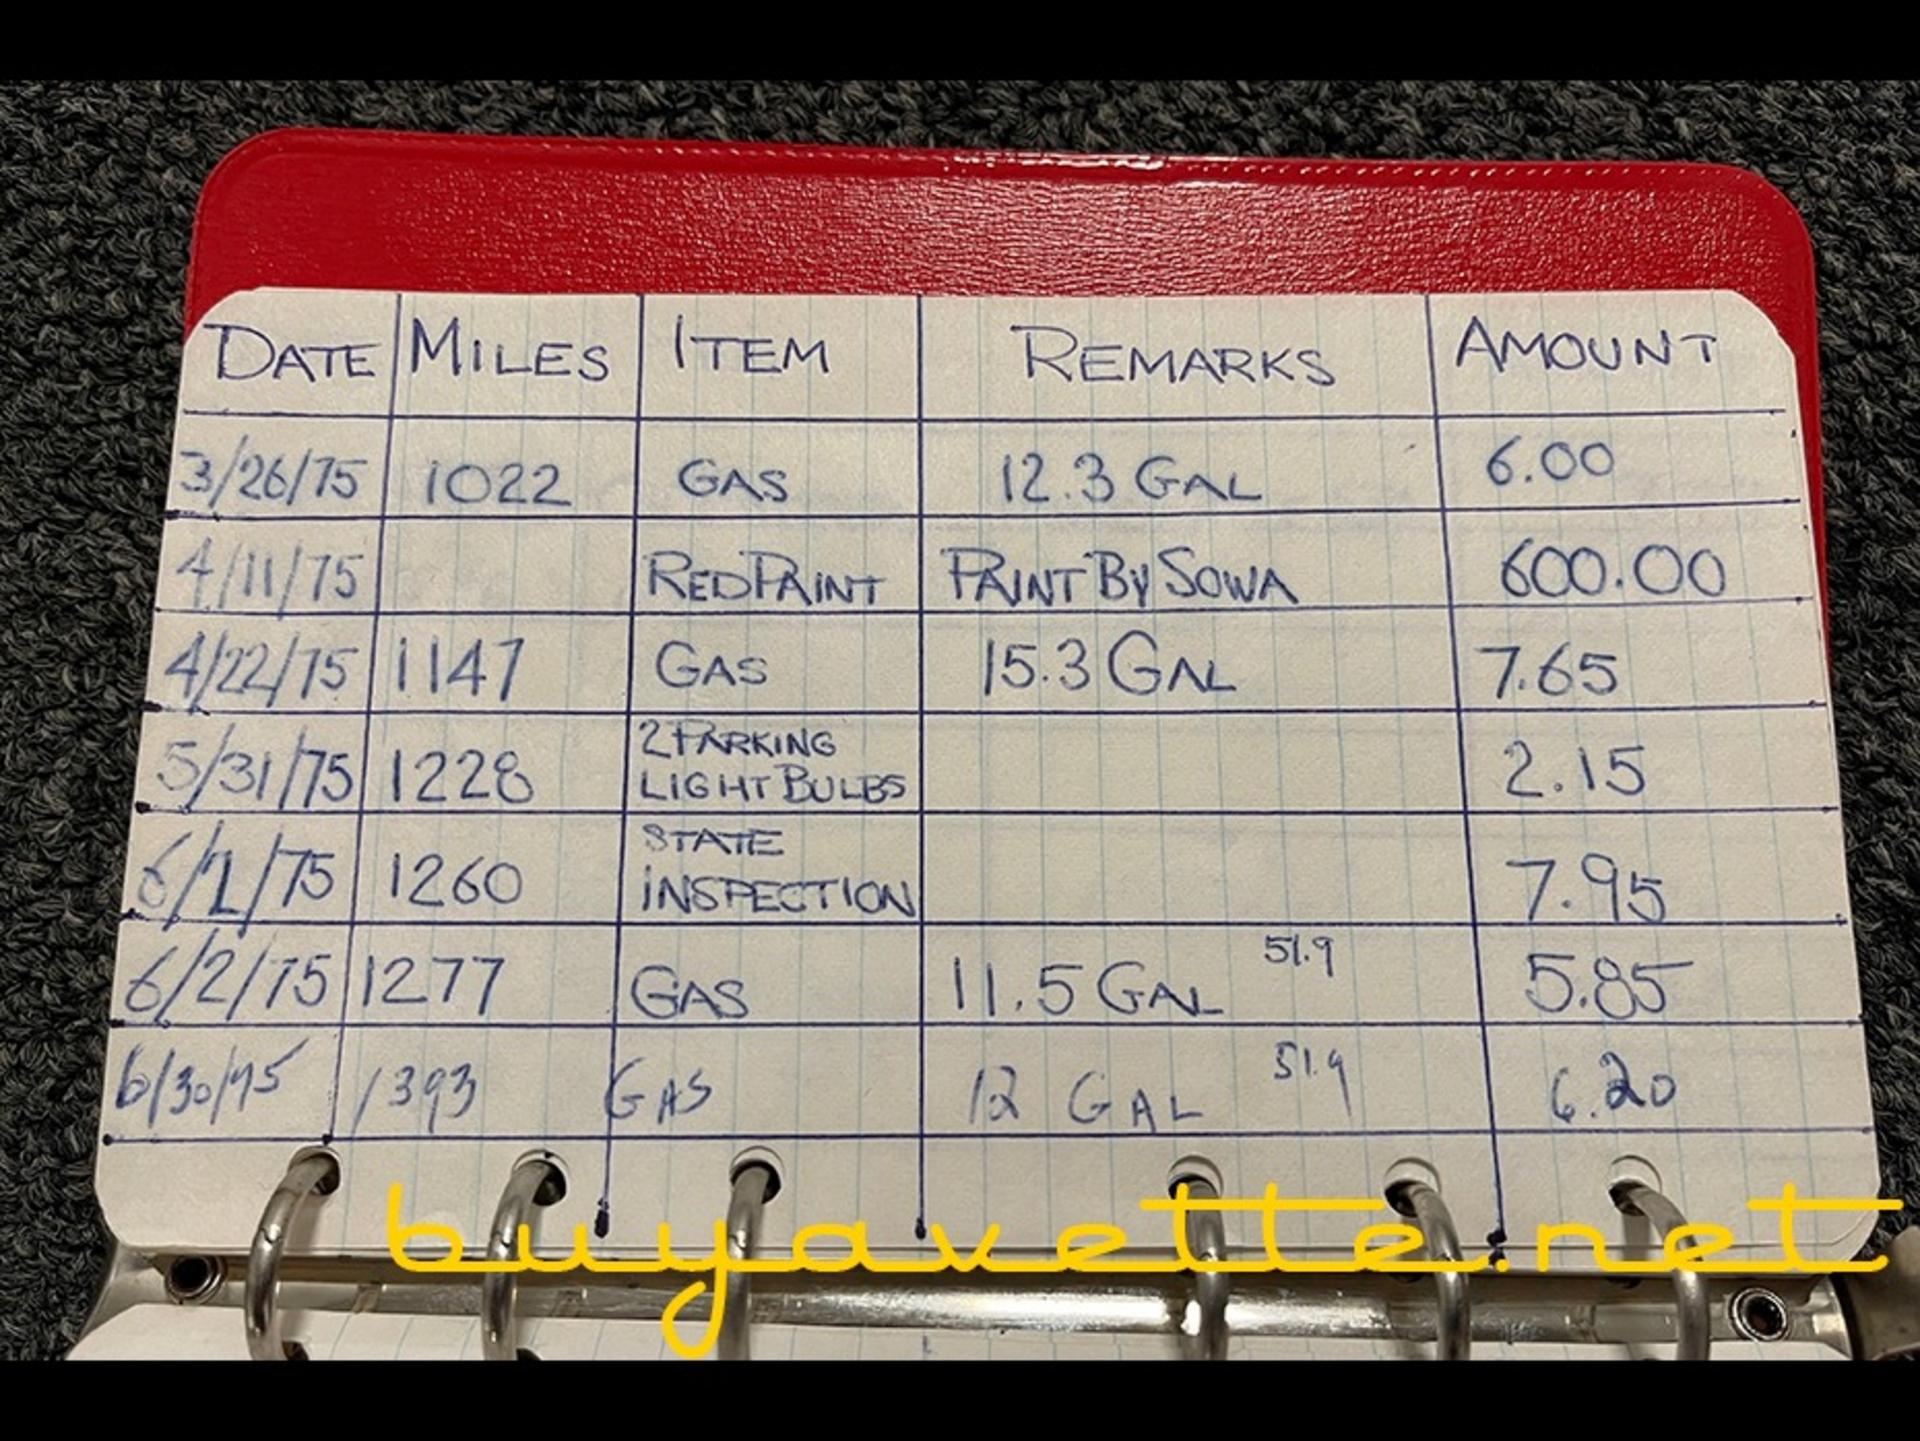 DATE MILES ITEM REMARKS AMOUNT
3/26/75 1022 GAS 12.3 GAL 6.00
4/11/75 RED PAINT PAINT BY SOWA 600.00
4/22/75 1147 GAS 15.3 GAL 7.65
5/31/75 1228 2 PARKING LIGHT BULBS 2.15
6/1/75 1260 STATE INSPECTION 7.95
6/2/75 1277 GAS 11.5 GAL 51.9 5.85
6/30/75 1393 GAS 12 GAL 51.9 6.20
buyavette.net